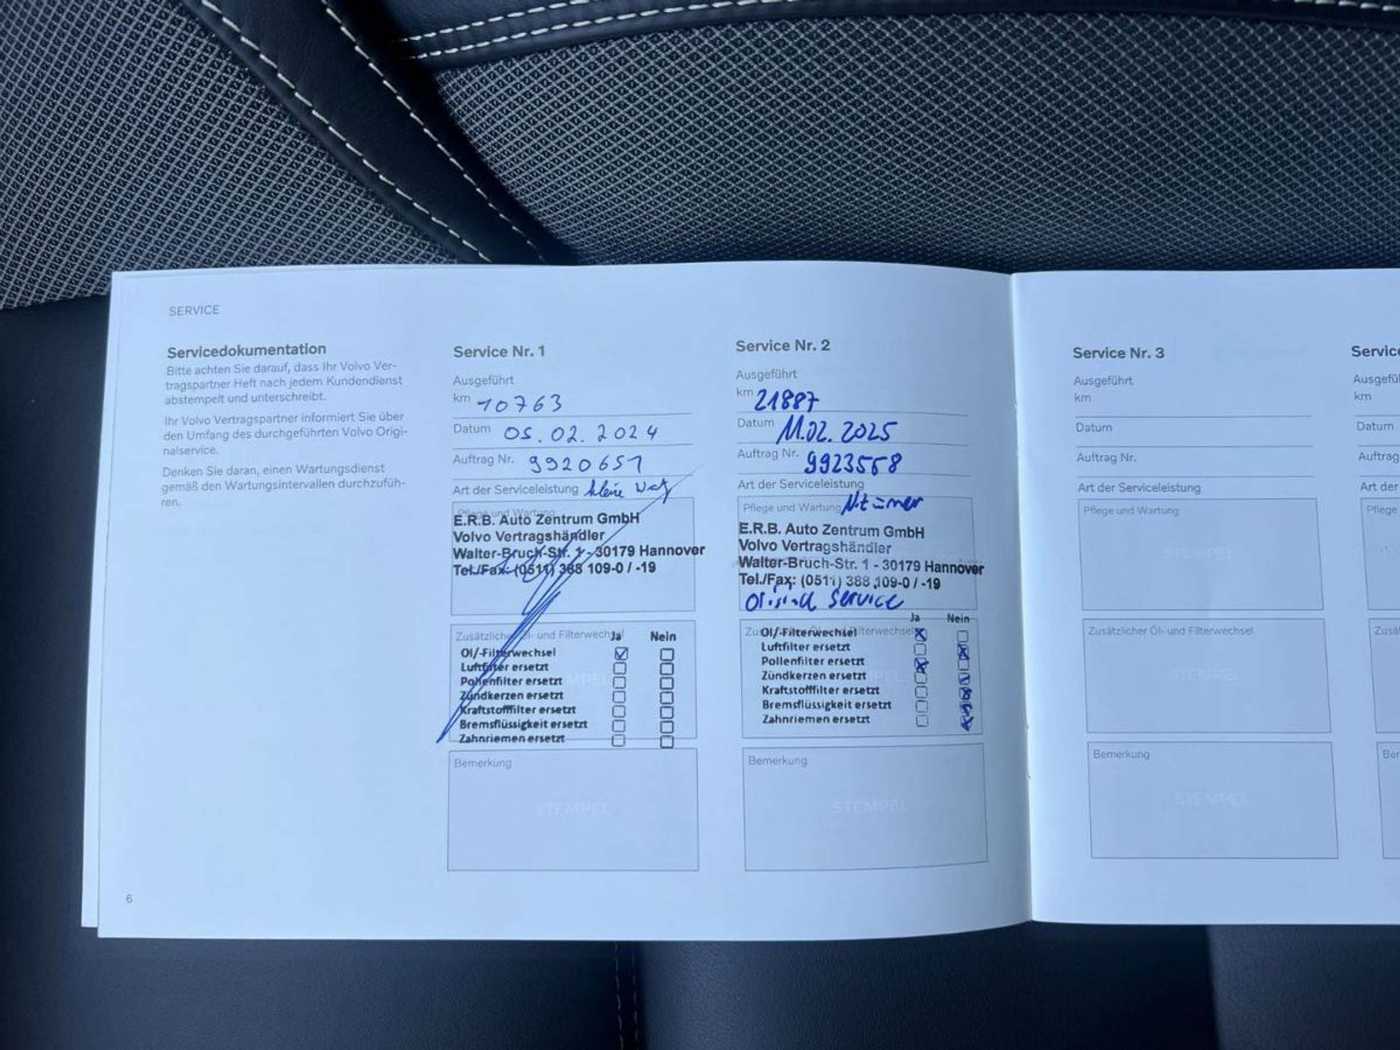 SERVICE
Servicedokumentation
Bitte achten Sie darauf, dass Ihr Volvo Ver-
tragspartner Heft nach jedem Kundendienst
abstempelt und unterschreibt.
Ihr Volvo Vertragspartner informiert Sie über
den Umfang des durchgeführten Volvo Origi-
nalservice.
Denken Sie daran, einen Wartungsdienst
gemäß den Wartungsintervallen durchzufüh-
ren.
6
Service Nr. 1
Ausgeführt
km 10763
Datum 05.02.2024
Auftrag Nr. 9920651
Art der Serviceleistung kleine
Pflege und Wartung
E.R.B. Auto Zentrum GmbH
Volvo Vertragshändler
Walter-Bruch-Str. 1 - 30179 Hannover
Tel./Fax: (0511) 388 109-0 / -19
Zusätzlicher Öl- und Filterwechsel
Ja Nein
Öl/-Filterwechsel
Luftfilter ersetzt
Pollenfilter ersetzt
Zündkerzen ersetzt
Kraftstofffilter ersetzt
Bremsflüssigkeit ersetzt
Zahnriemen ersetzt
Bemerkung
STEMPEL
Service Nr. 2
Ausgeführt
km 21887
Datum 11.02.2025
Auftrag Nr. 9923558
Art der Serviceleistung
Pflege und Wartung
E.R.B. Auto Zentrum GmbH
Volvo Vertragshändler
Walter-Bruch-Str. 1 - 30179 Hannover
Tel./Fax: (0511) 388 109-0 / -19
Service
Ja Nein
Öl/-Filterwechsel
Luftfilter ersetzt
Pollenfilter ersetzt
Zündkerzen ersetzt
Kraftstofffilter ersetzt
Bremsflüssigkeit ersetzt
Zahnriemen ersetzt
Bemerkung
STEMPEL
Service Nr. 3
Ausgeführt
km
Datum
Auftrag Nr.
Art der Serviceleistung
Pflege und Wartung
STEMPEL
Zusätzlicher Öl- und Filterwechsel
STEMPEL
Bemerkung
STEMPEL
Service
Ausgefü
km
Datum
Auftrag
Art der
Pflege
Zusä
Ber